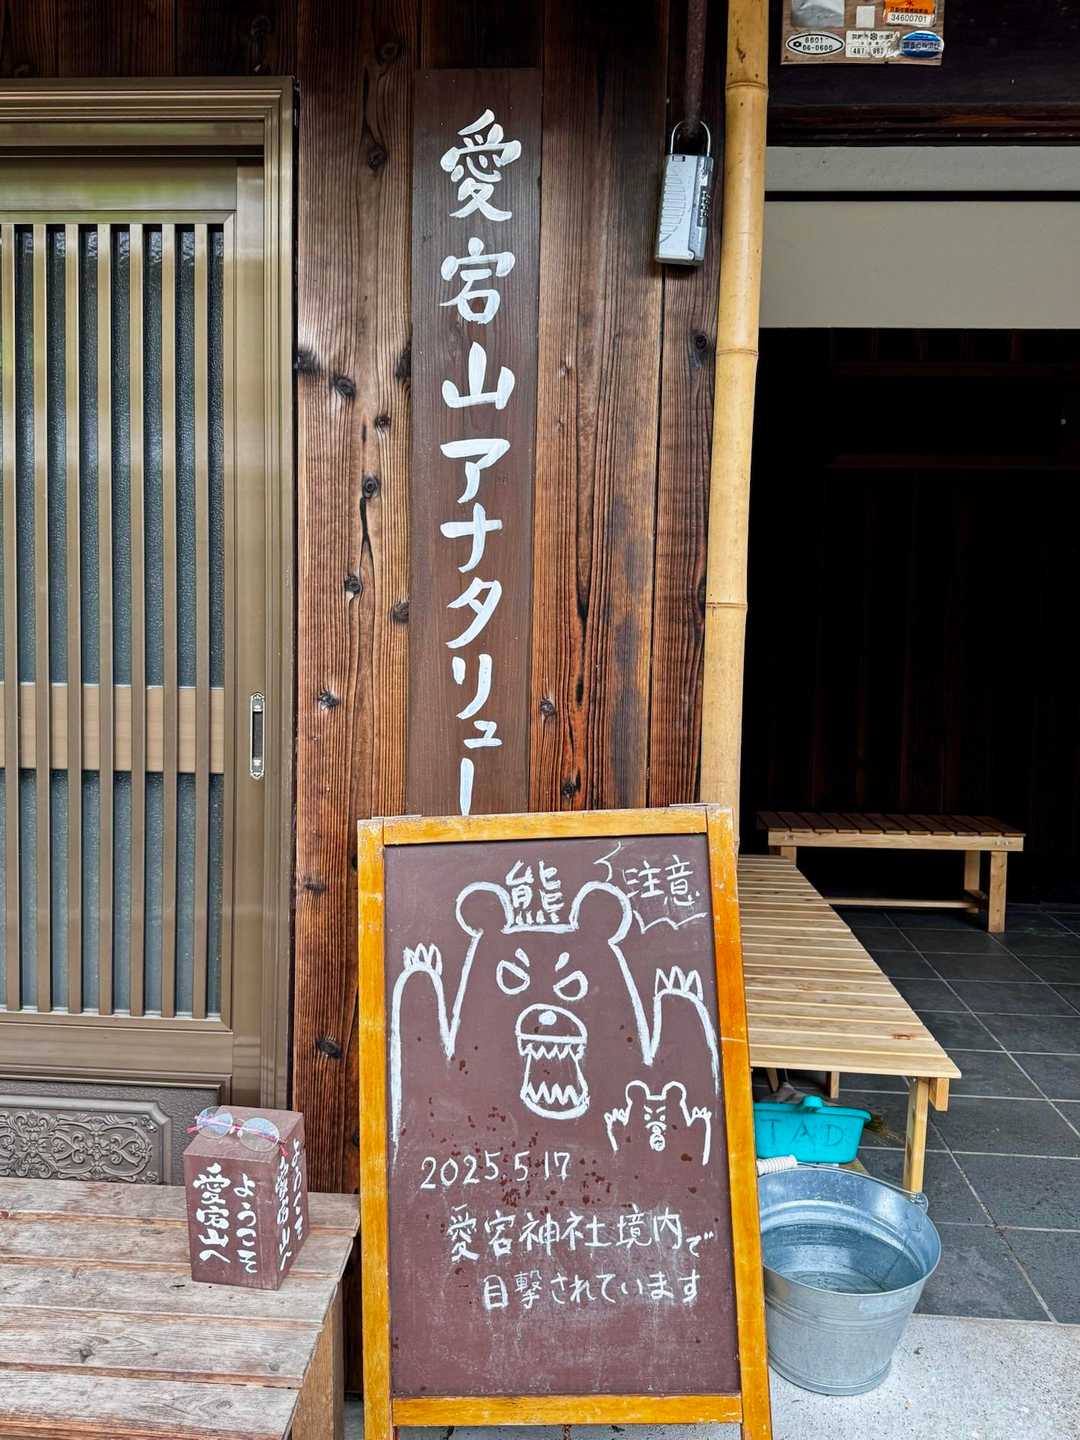 34600701
6601
06-0600
愛宕山アナタリュー
熊
注意
2025.5.17
愛宕神社境内で
目撃されています
ようこそ
愛宕山へ
ようこそ
愛宕山へ
TAD